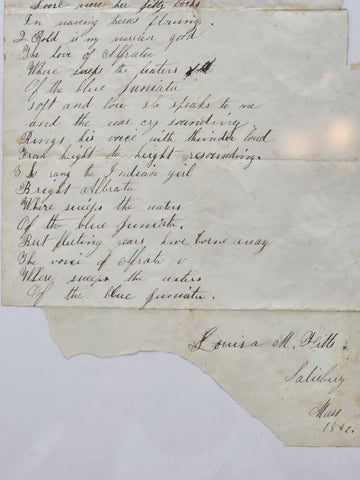 Loose were her jetty locks
In waveing tresses flowing.
2 Bold is my warrior good
The love of Alfrata
Where sweeps the waters
Of the blue Juniata
soft and low she speaks to me
and the war cry sounding
Rings his voice with thunder loud
From hight to hight resounding.
3 So sang the Indian girl
Bright Alfrata
Where sweeps the waters
Of the blue Juniata.
But fleeting years have borne away
The voice of Alfrata
Where sweeps the waters
Of the blue Juniata.
Louisa M.
Salisbury
Mass